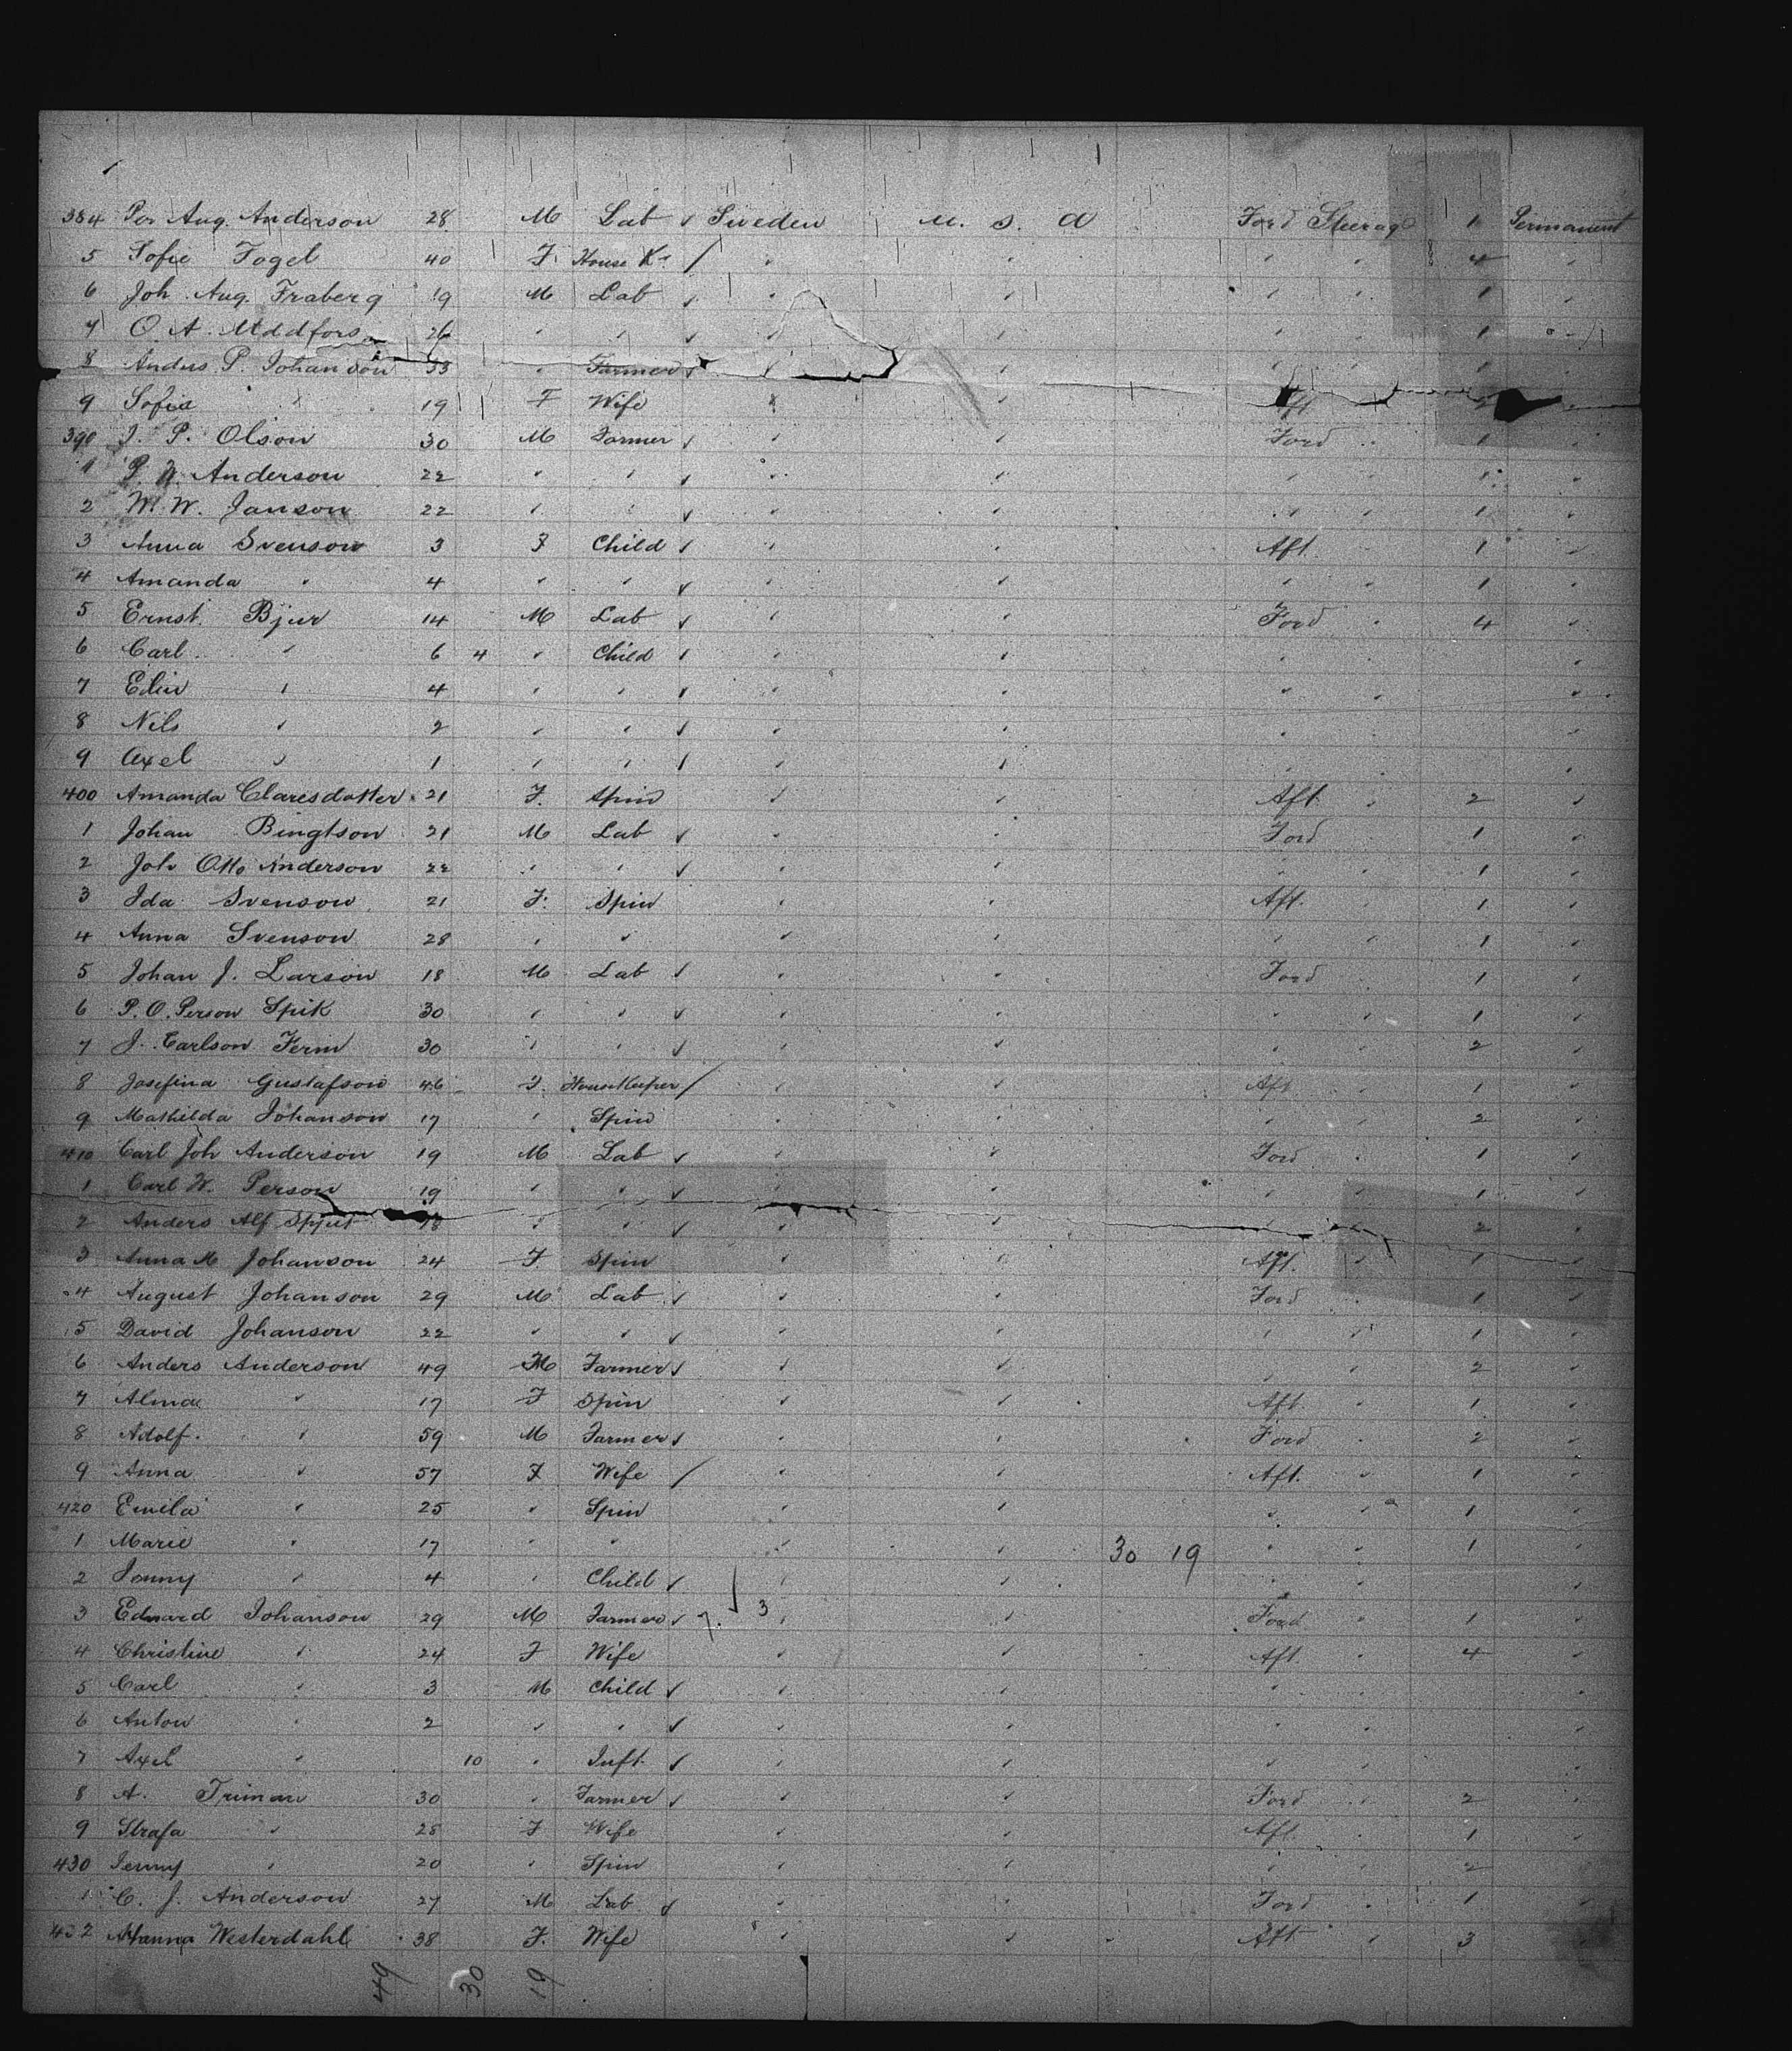 384 Per Aug. Anderson 28 M Lab ✓ Sweden U. S. A Ford Steerage 1 Permanent
5 Sofie Fogel 40 F House K. / " " " " 4 "
6 Joh Aug. Fraberg 19 M Lab ✓ " " " " 1 "
7 O. A. 26 " " ✓ " " " " 1 "
8 Anders P. Johanson " Farmer ✓ " " " "
9 Sofia " 19 F Wife " " Aft 2 "
390 J. P. Olson 30 M Farmer ✓ " " Ford " 1 "
1 Anderson 22 " " ✓ " " " " 1 "
2 W. W. Janson 22 " " ✓ " " " " 1 "
3 Anna Svenson 3 F Child ✓ " " Aft. " 1 "
4 Amanda " 4 " " ✓ " " " " 1 "
5 Ernst Bjur 14 M Lab ✓ " " Ford " 4 "
6 Carl " 6 4 " Child ✓ " " " "
7 Elin " 4 " " ✓ " " " " "
8 Nils " 2 " " ✓ " " " "
9 Axel " 1 " " ✓ " " " "
400 Amanda Claresdotter 21 F. Spin " " Aft " 2 "
1 Johan Bingtson 21 M Lab ✓ " " Ford " 1 "
2 Joh Otto Anderson 22 " " ✓ " " " " 1 "
3 Ida Svenson 21 F. Spin " " Aft. " 1 "
4 Anna Svenson 28 " " " " " " 1 "
5 Johan J. Larson 18 M Lab ✓ " " Ford " 1 "
6 P. O. Person Spik 30 " " ✓ " " " " 1 "
7 J. Carlson Ferm 30 " " ✓ " " " " 2 "
8 Josefina Gustafson 46 F. HouseKeeper / " " Aft " 1 "
9 Mathilda Johanson 17 " Spin " " " " 2 "
410 Carl Joh Anderson 19 M Lab ✓ " " Ford " 1 "
1 Carl W. Person 19 " " ✓ " " " " 1 "
2 Anders Alf Spjut 18 " " ✓ " " " " 2 "
3 Anna M Johanson 24 F Spin " " Aft. " 1 "
4 August Johanson 29 M Lab ✓ " " Ford " 1 "
5 David Johanson 22 " " ✓ " " " " 1 "
6 Anders Anderson 49 M Farmer ✓ " " " " 2 "
7 Alma " 17 F Spin " " Aft " 1 "
8 Adolf " 59 M Farmer ✓ " " Ford " 2 "
9 Anna " 57 F Wife / " " Aft. " 1 "
420 Emila " 25 " Spin " " " " 1 "
1 Marie " 17 " " " " 30 19 " " 1 "
2 " 4 " Child ✓ " " " " "
3 Edward Johanson 29 M Farmer ✓ 3 " " Ford " 1 "
4 Christine " 24 F Wife " " Aft " 4 "
5 Carl " 3 M Child ✓ " " " " "
6 Anton " 2 " " ✓ " " " " "
7 Axel " 10 " Inft. ✓ " " " " "
8 A. Friman 30 " Farmer ✓ " " Ford " 2 "
9 Strafa " 25 F Wife " " Aft. " 1 "
430 Jenny " 20 " Spin " " " " 2 "
1 C. J. Anderson 27 M Lab ✓ " " Ford " 1 "
432 Westerdahl 38 F. Wife " " Aft " 3 "
49 30 19